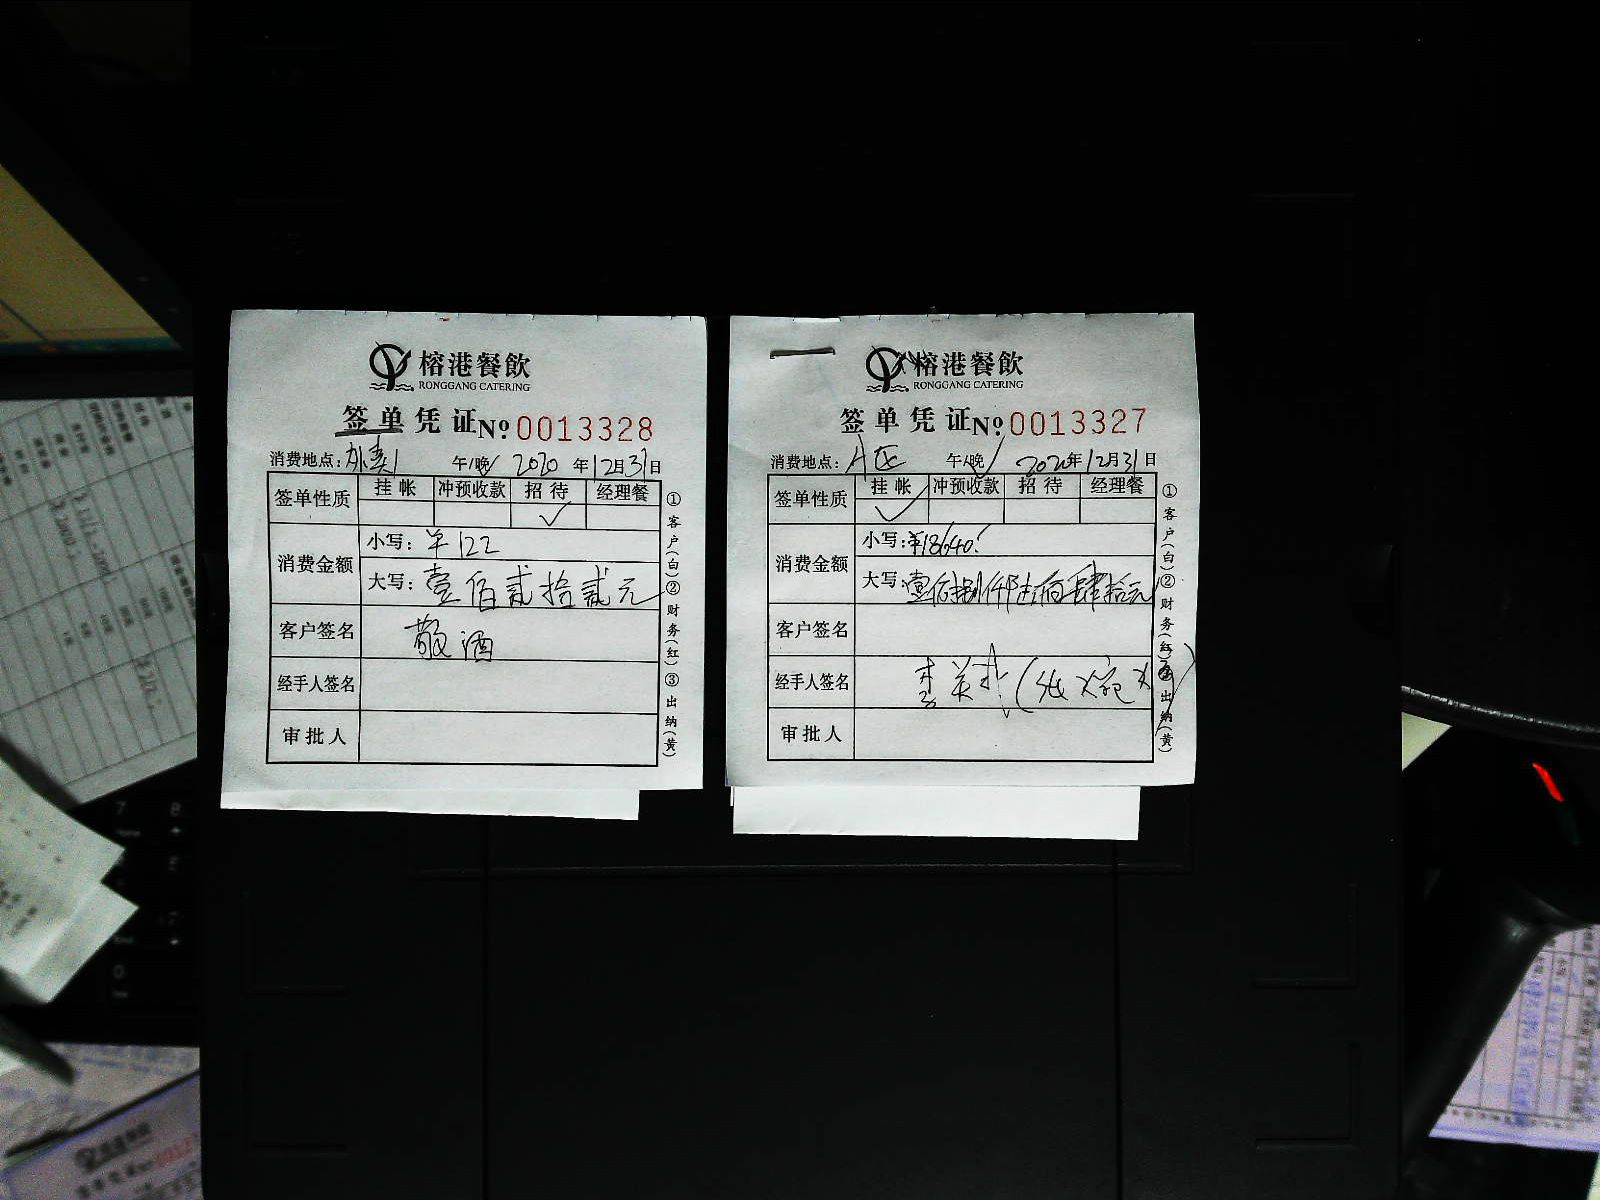 榕港餐飲
RONGGANG CATERING
签单凭证№ 0013328
消费地点：外卖1 午/晚✓ 2020年12月31日
签单性质 挂帐 冲预收款 招待 经理餐
✓
消费金额 小写：¥122
大写：壹佰贰拾贰元
客户签名 敬酒
经手人签名
审批人
①客户(白)②财务(红)③出纳(黄)
榕港餐飲
RONGGANG CATERING
签单凭证№ 0013327
消费地点：A区 午/晚✓ 2020年12月31日
签单性质 挂帐 冲预收款 招待 经理餐
✓
消费金额 小写：¥18640
大写：
客户签名
经手人签名
审批人
①客户(白)②财务(红)出纳(黄)